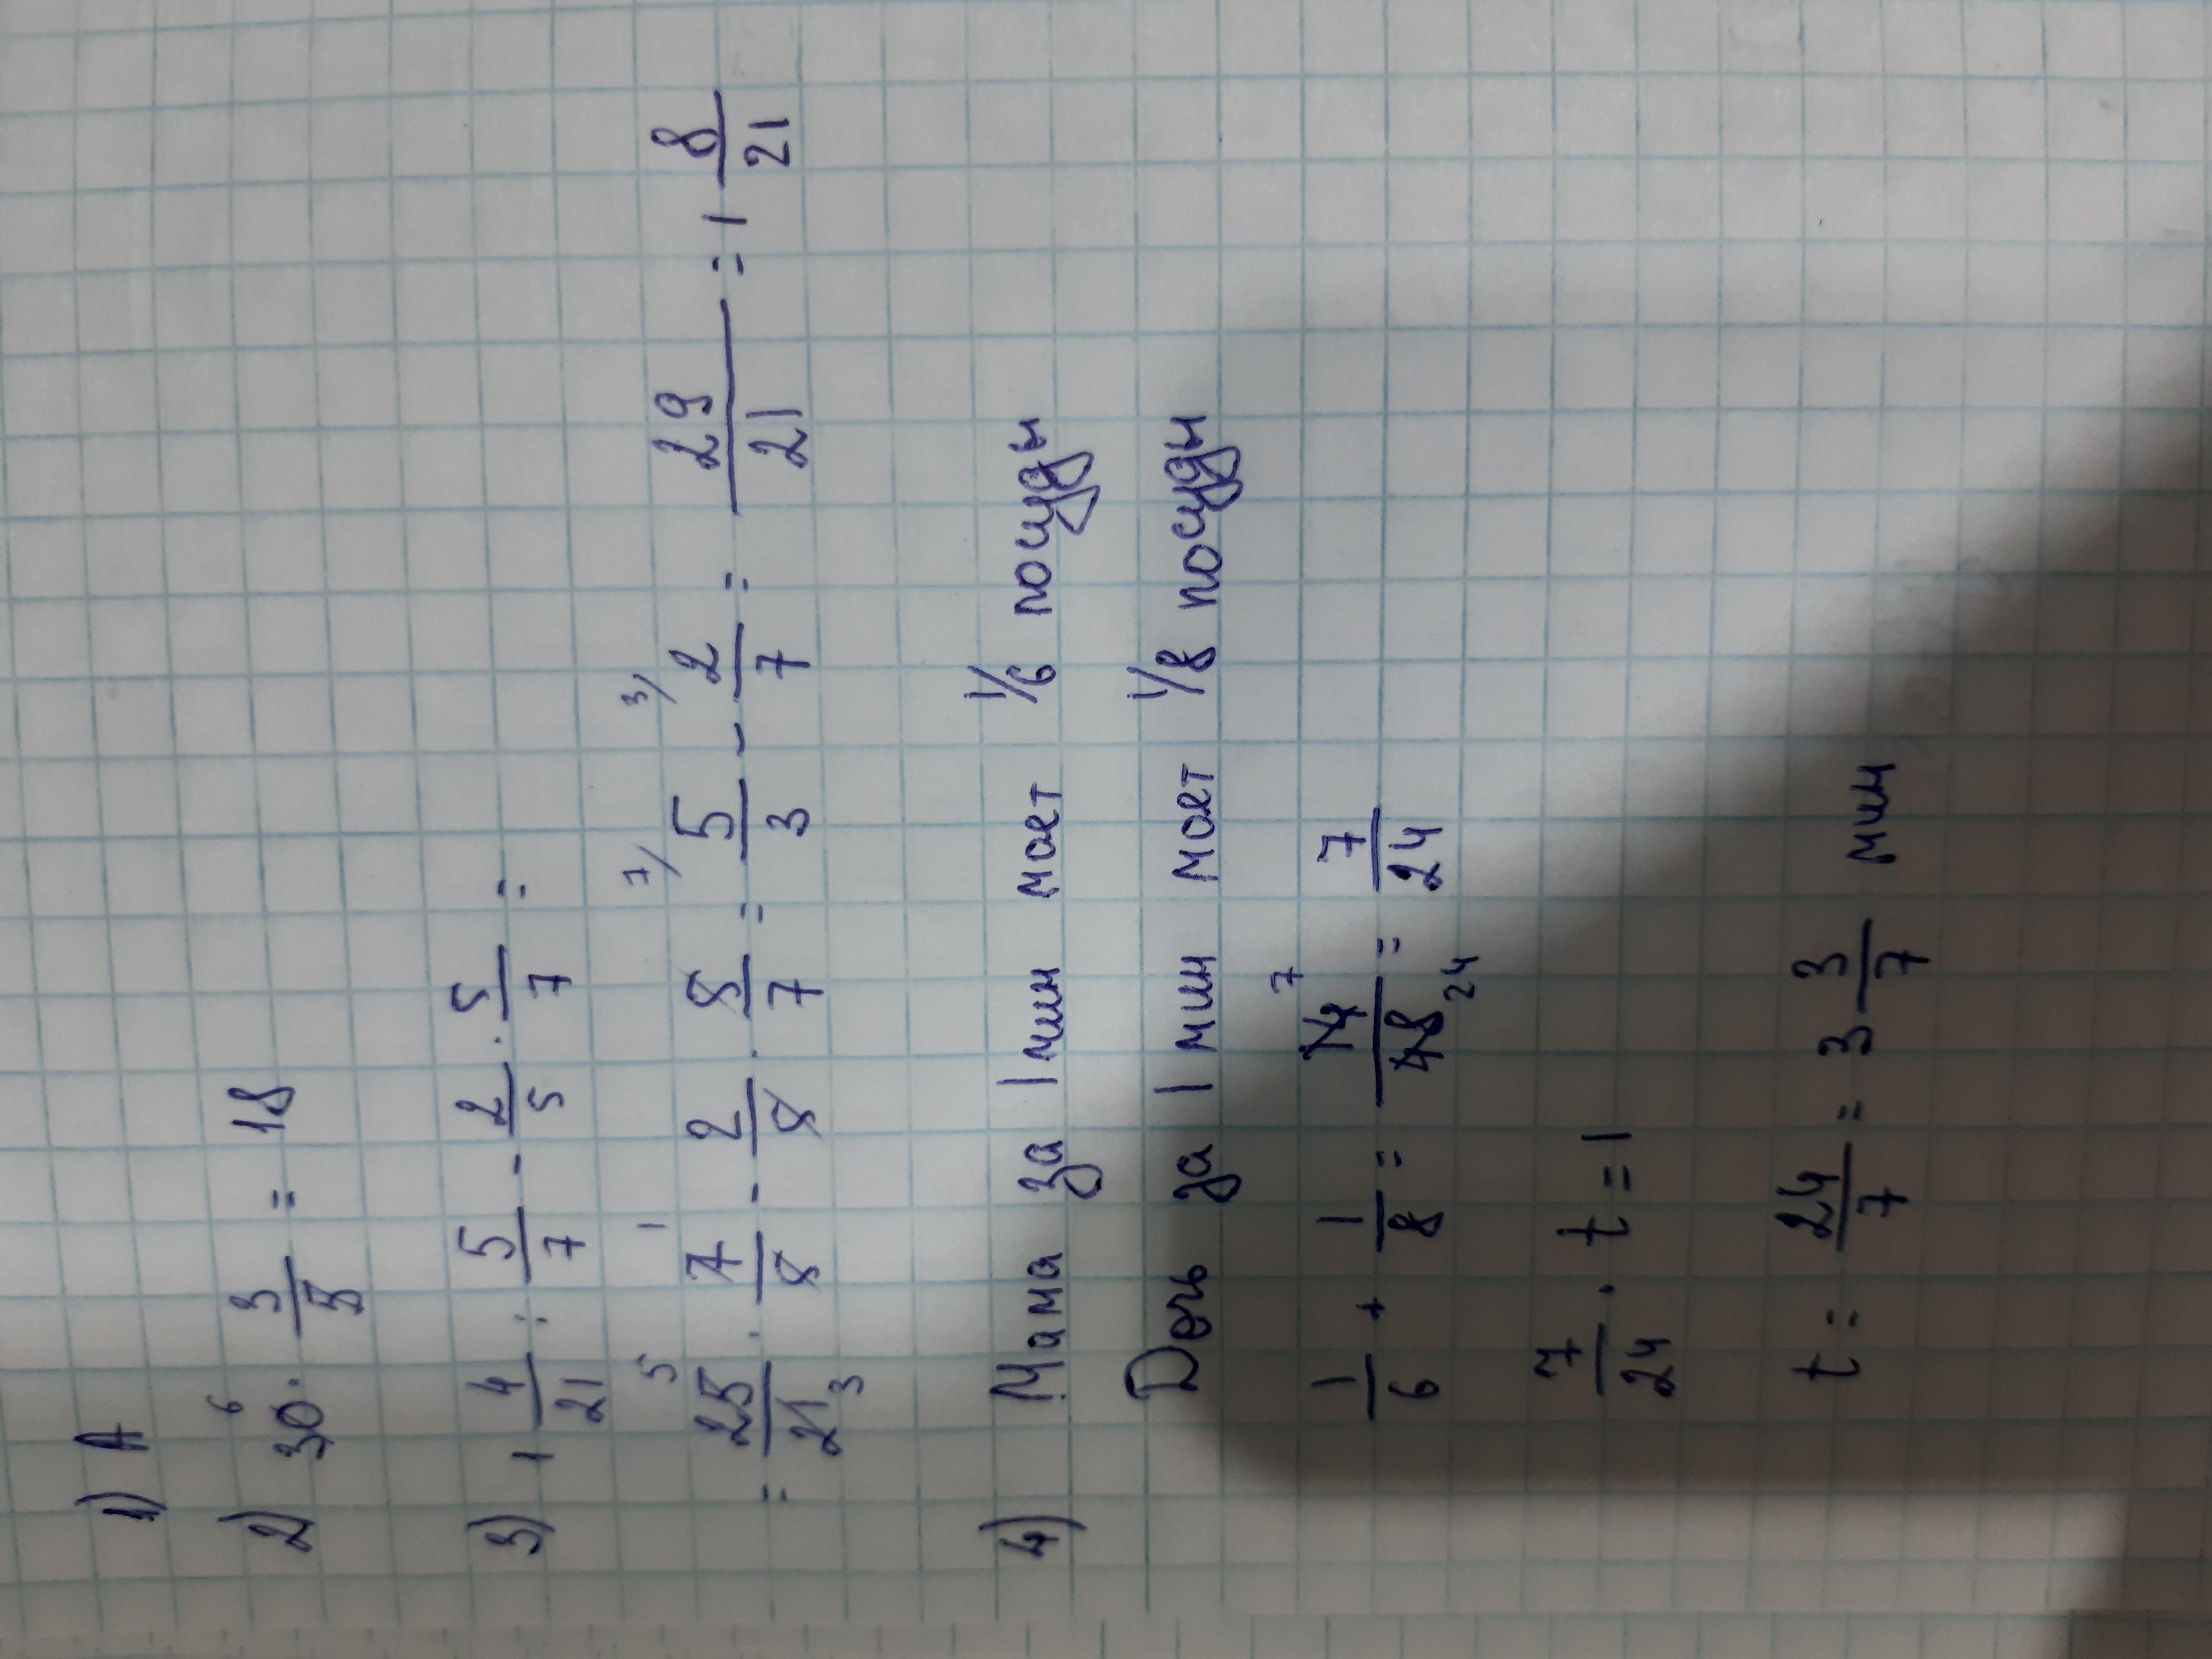 1) A
2) 30 6 · 3/5 = 18
3) 1 4/21 : 5/7 - 2/5 · 5/7 =
= 25 5/21 3 · 7 1/5 - 2/5 · 5/7 = 7/ 5/3 - 3/ 2/7 = 29/21 = 1 8/21
4) Мама за 1 мин моет 1/6 посуды
Дочь за 1 мин моет 1/8 посуды
1/6 + 1/8 = 14 7/48 24 = 7/24
7/24 · t = 1
t = 24/7 = 3 3/7 мин